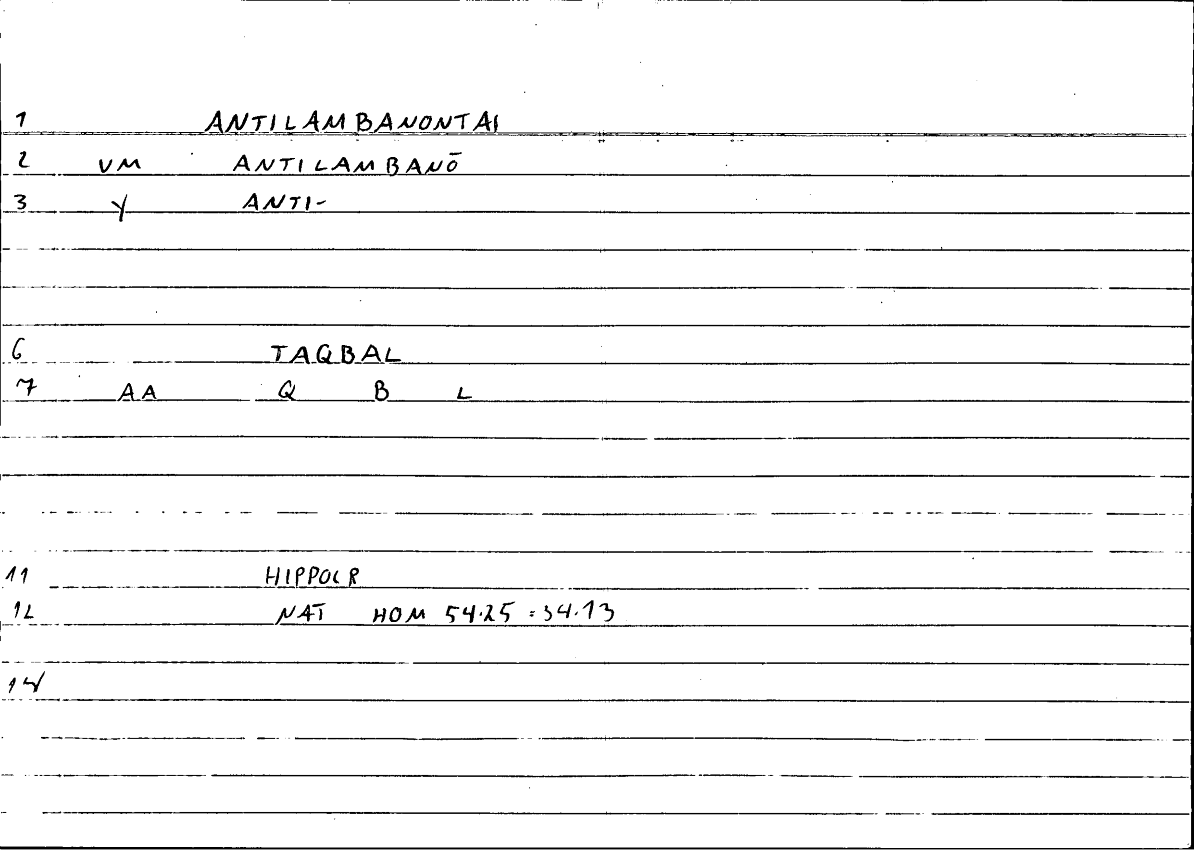 1 ANTILAMBANONTAI
2 VM ANTILAMBANŌ
3 Y ANTI-
6 TAQBAL
7 AA Q B L
11 HIPPOCR
12 NAT HOM 54.25 = 34.13
14